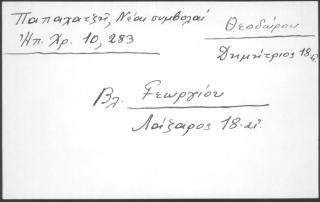 Παπαχατζῆ, Νέαι συμβολαί
Ἠπ. Χρ. 10, 283
Θεοδώρου
Δημήτριος 18.αἰ.
Βλ. Γεωργίου
Λάζαρος 18.αἰ.